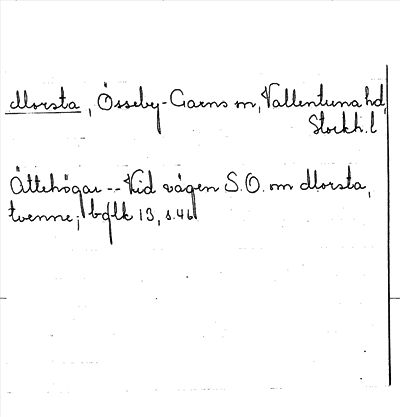 Morsta, Össeby-Garns sn, Vallentuna hd,
Stockh. l
Ättehögar -- Vid vägen S.O. om Morsta,
tvenne; bqlk 13, s. 46